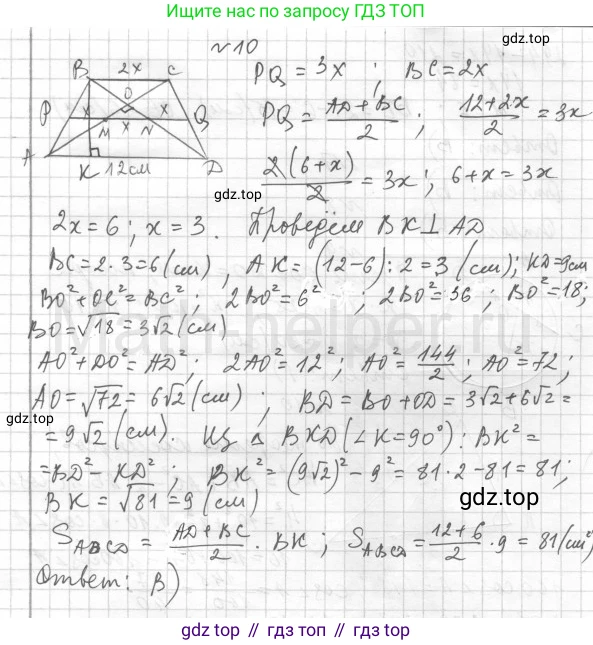 Ищите нас по запросу ГДЗ ТОП
№10
B 2x C
O
P x x Q
M x N
A K 12см D
PQ = 3x ; BC = 2x
PQ = (AD + BC)/2 ; (12+2x)/2 = 3x
2(6+x)/2 = 3x ; 6+x = 3x
gdz.top
2x = 6 ; x = 3. Проведём BK ⊥ AD
BC = 2·3 = 6 (см), AK = (12-6):2 = 3 (см); KD = 9см
BO² + OC² = BC² ; 2BO² = 6² ; 2BO² = 36 ; BO² = 18;
BO = √18 = 3√2 (см)
AO² + DO² = AD² ; 2AO² = 12² ; AO² = 144/2 ; AO² = 72 ;
AO = √72 = 6√2 (см) ; BD = BO + OD = 3√2 + 6√2 =
gdz.top
= 9√2 (см). Из Δ BKD (∠K = 90°): BK² =
= BD² - KD² ; BK² = (9√2)² - 9² = 81·2 - 81 = 81;
BK = √81 = 9 (см)
gdz.top
S ABCD = (AD + BC)/2 · BK ; S ABCD = (12+6)/2 · 9 = 81 (см²)
Ответ: В)
gdz.top // гдз топ // gdz.top